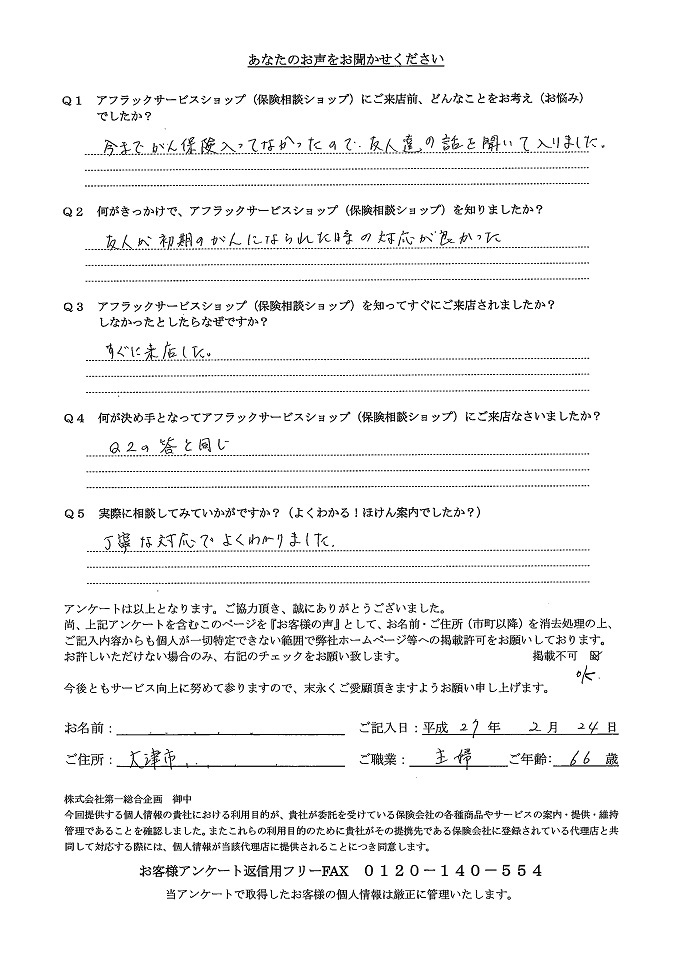 あなたのお声をお聞かせください
Q1 アフラックサービスショップ（保険相談ショップ）にご来店前、どんなことをお考え（お悩み）
でしたか？
今までがん保険入ってなかったので、友人達の話を聞いて入りました。
Q2 何がきっかけで、アフラックサービスショップ（保険相談ショップ）を知りましたか？
友人が初期のがんになられた時の対応が良かった
Q3 アフラックサービスショップ（保険相談ショップ）を知ってすぐにご来店されましたか？
しなかったとしたらなぜですか？
すぐに来店した。
Q4 何が決め手となってアフラックサービスショップ（保険相談ショップ）にご来店なさいましたか？
Q2の答と同じ
Q5 実際に相談してみていかがですか？（よくわかる！ほけん案内でしたか？）
丁寧な対応でよくわかりました。
アンケートは以上となります。ご協力頂き、誠にありがとうございました。
尚、上記アンケートを含むこのページを『お客様の声』として、お名前・ご住所（市町以降）を消去処理の上、
ご記入内容からも個人が一切特定できない範囲で弊社ホームページ等への掲載許可をお願いしております。
お許しいただけない場合のみ、右記のチェックをお願い致します。 掲載不可
ok.
今後ともサービス向上に努めて参りますので、末永くご愛顧頂きますようお願い申し上げます。
お名前： ご記入日：平成 27 年 2 月 24 日
ご住所： 大津市 ご職業： 主婦 ご年齢： 66 歳
株式会社第一総合企画 御中
今回提供する個人情報の貴社における利用目的が、貴社が委託を受けている保険会社の各種商品やサービスの案内・提供・維持
管理であることを確認しました。またこれらの利用目的のために貴社がその提携先である保険会社に登録されている代理店と共
同して対応する際には、個人情報が当該代理店に提供されることにつき同意します。
お客様アンケート返信用フリーFAX 0120－140－554
当アンケートで取得したお客様の個人情報は厳正に管理いたします。